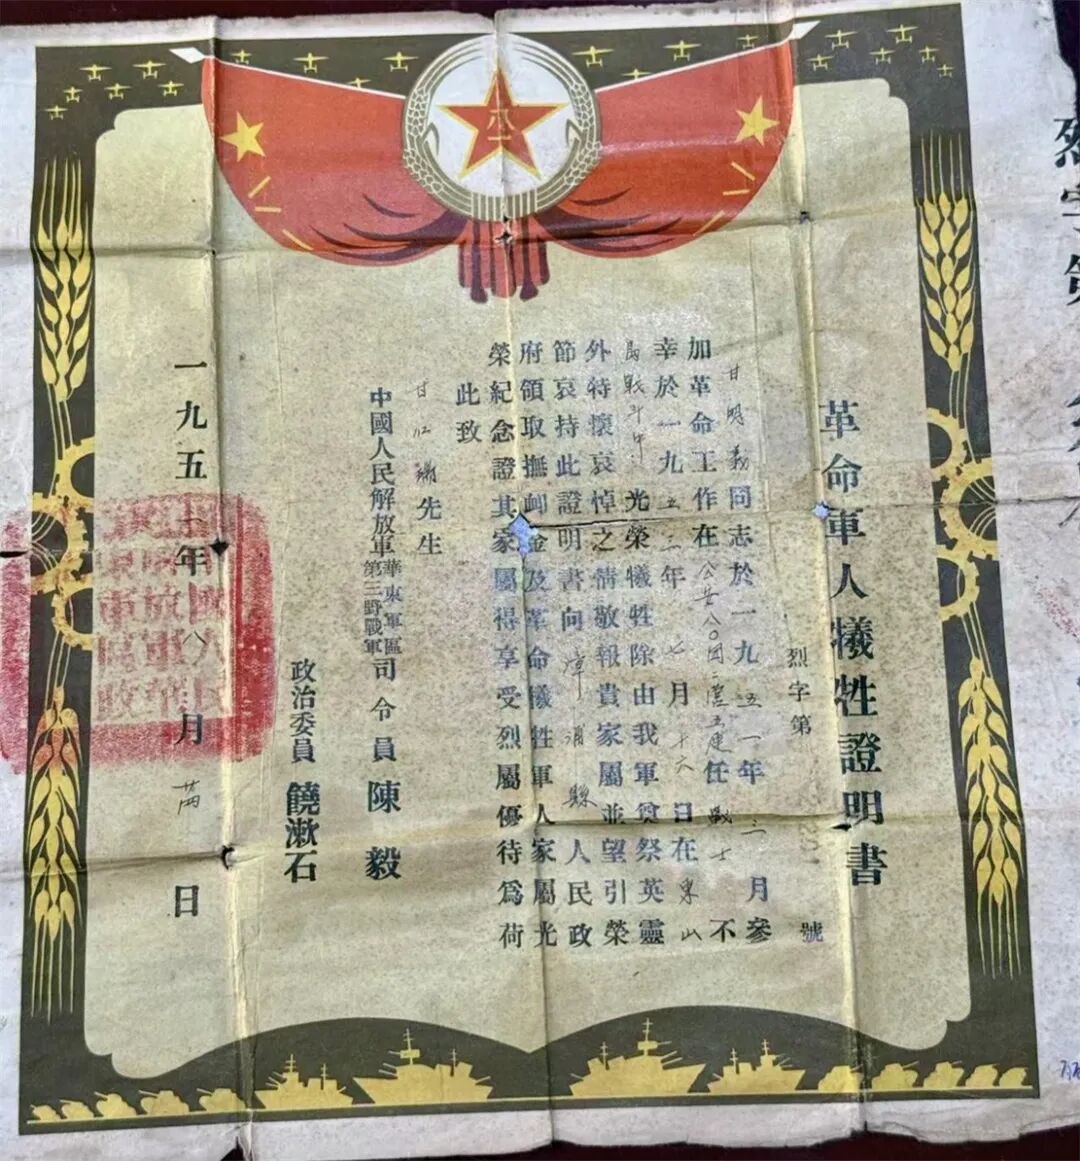 八一
革命軍人犧牲證明書
烈字第 號
甘明義同志於一九五一年三月參
加革命工作在公安八〇團二營五連任戰士不
幸於一九五三年七月十六日在東山
島戰斗中光榮犧牲除由我軍奠祭英靈
外特懷哀悼之情敬報貴家屬並望引榮
節哀持此證明書向漳浦縣人民政
府領取撫卹金及革命犧牲軍人家屬光
榮紀念證其家屬得享受烈屬優待爲荷
此致
甘江 先生
中國人民解放軍華東軍區第三野戰軍司令員 陳毅
政治委員 饒漱石
一九五 年八月廿四日
烈字第